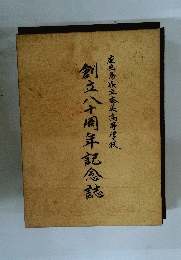 鹿児島県立奄美高等学校
創立八十周年記念誌